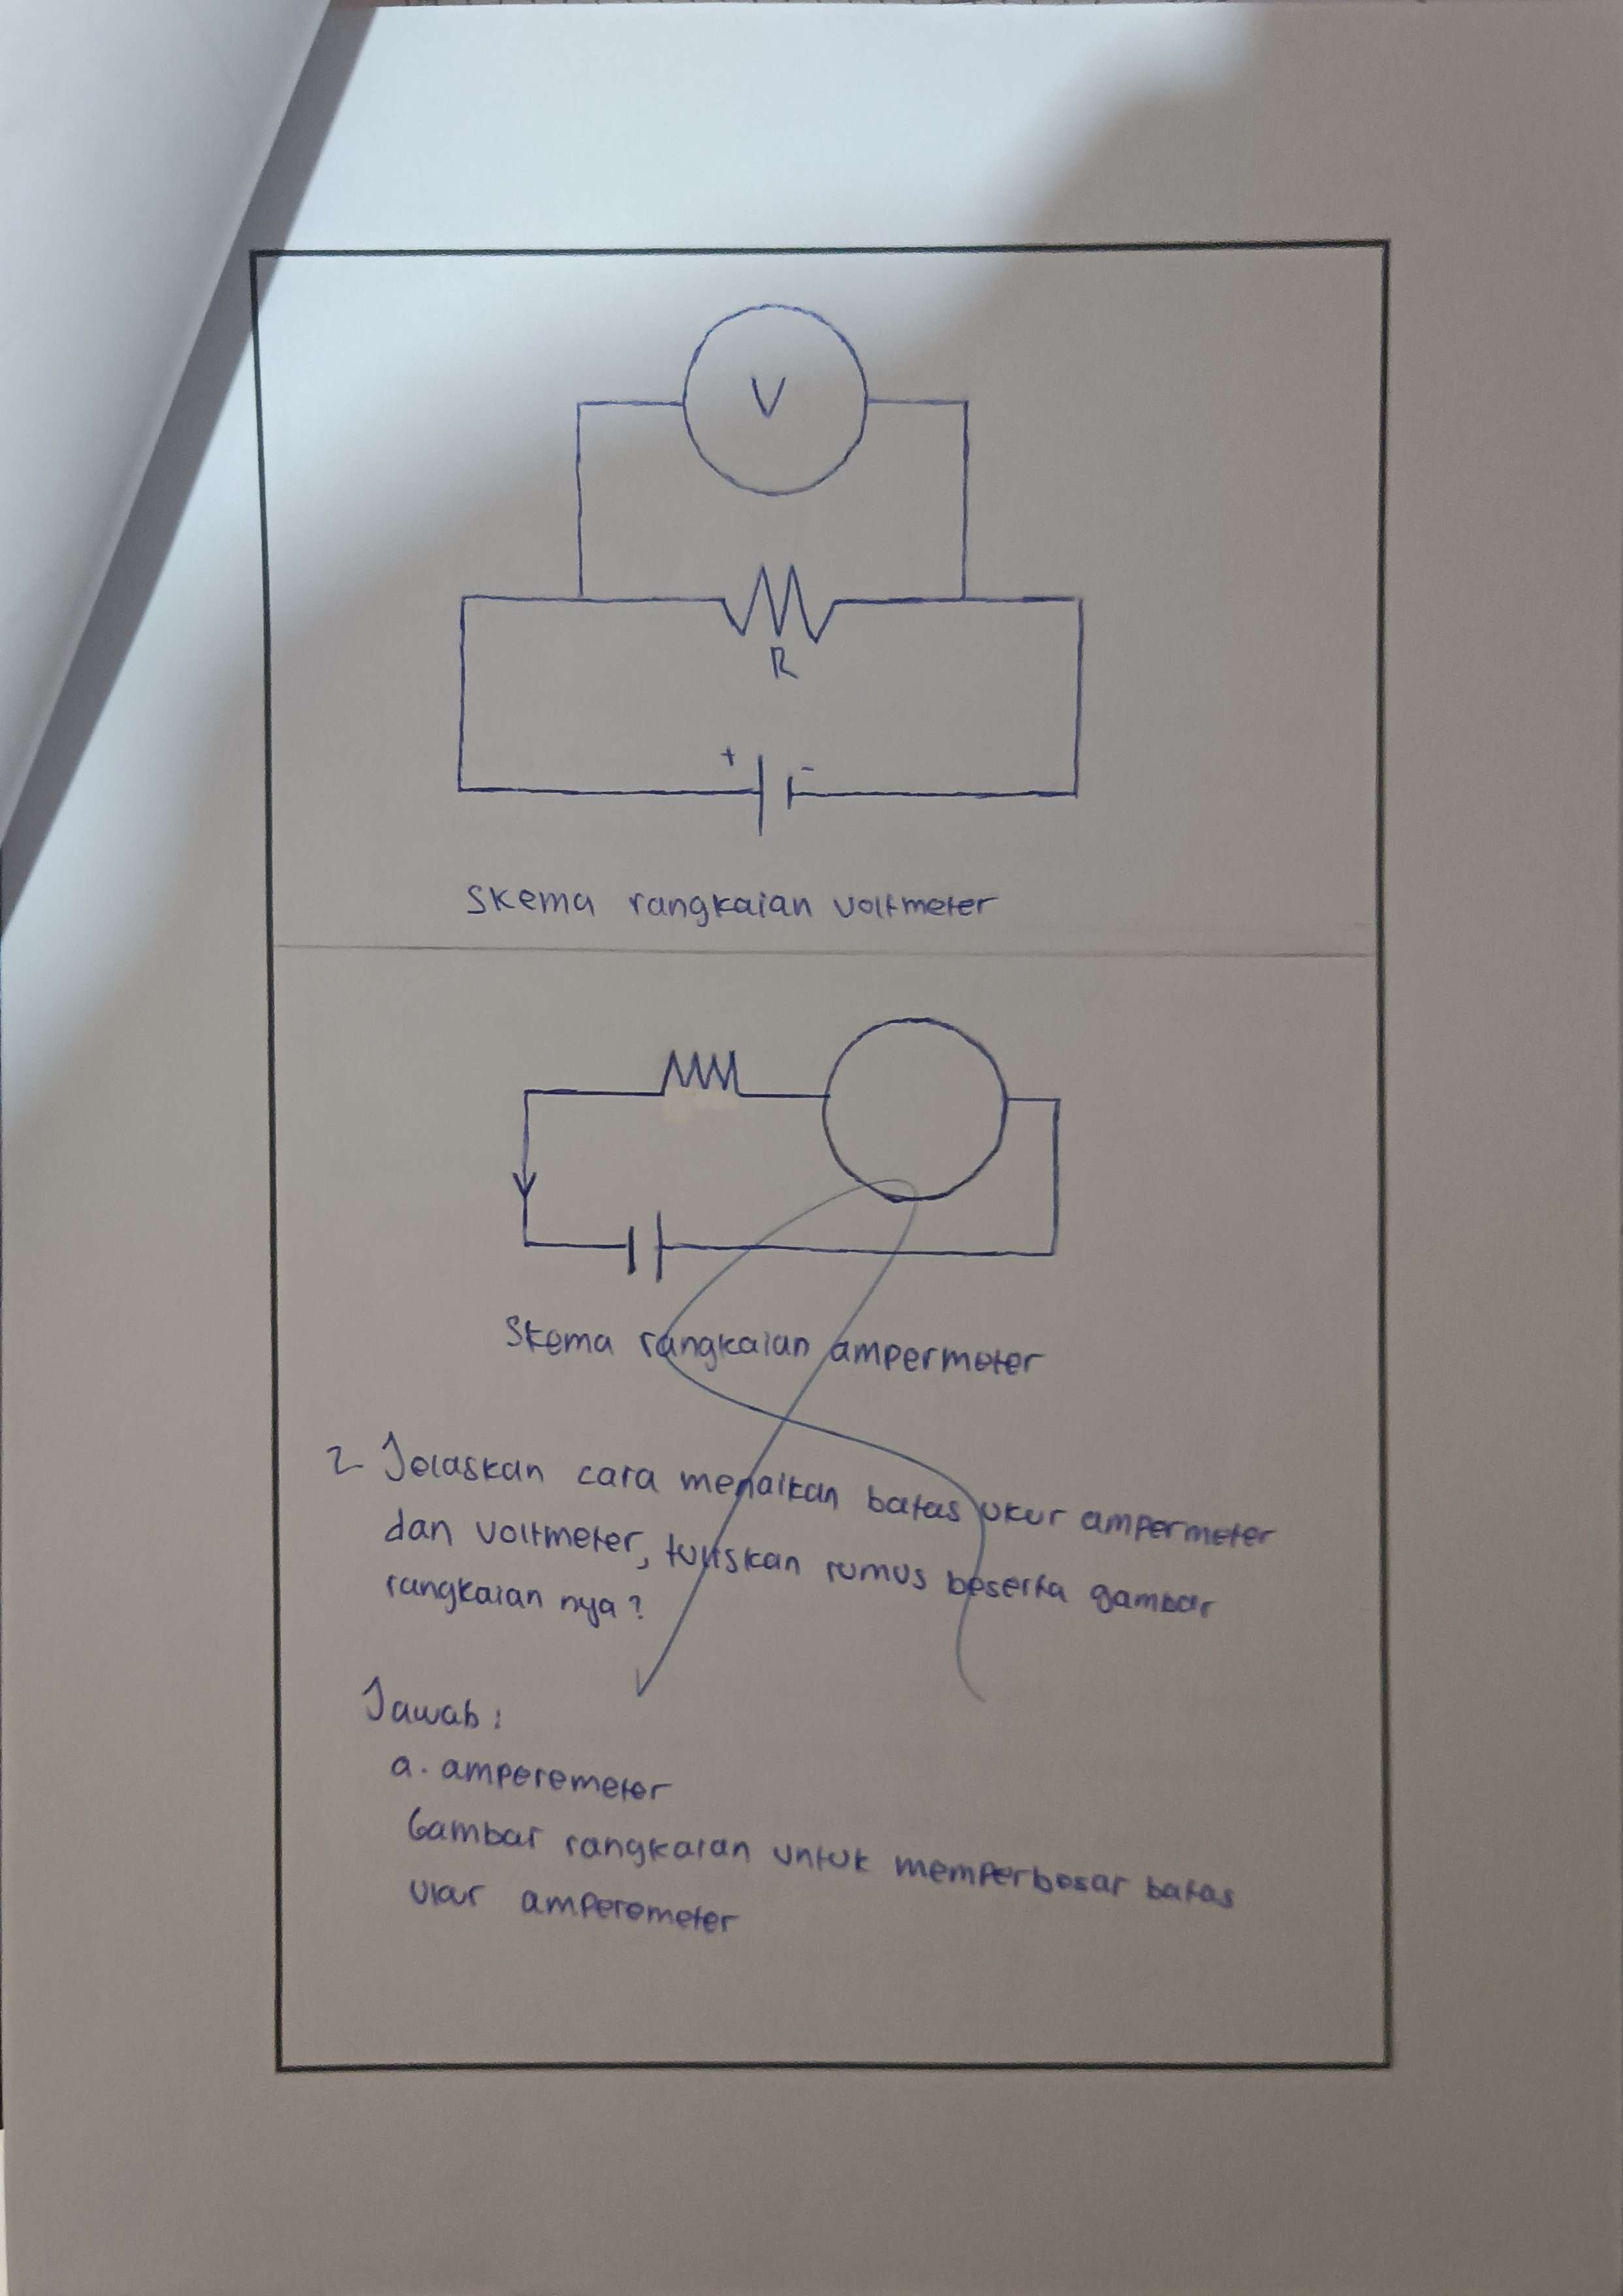 V
R
+ -
Skema rangkaian voltmeter
Skema rangkaian ampermeter
2 Jelaskan cara menaikan batas ukur ampermeter
dan voltmeter, tuliskan rumus beserta gambar
rangkaian nya?
Jawab:
a. amperemeter
Gambar rangkaian untuk memperbesar batas
ukur amperemeter